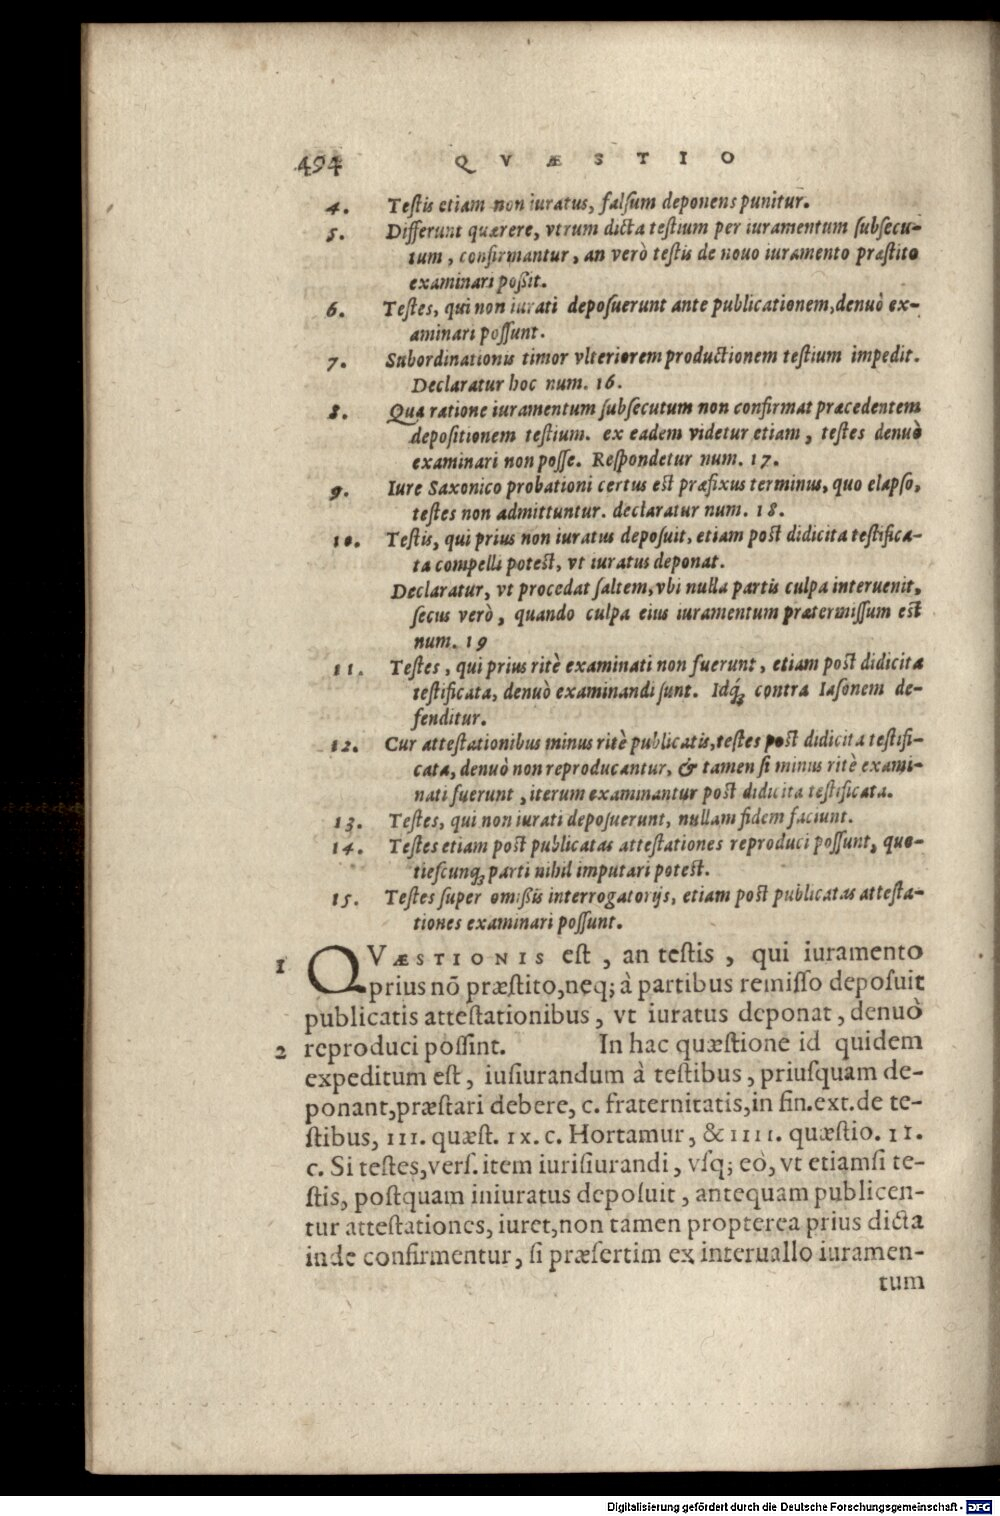 494 QVÆSTIO
4. Testis etiam non iuratus, falsum deponens punitur.
5. Differunt quærere, vtrum dicta testium per iuramentum subsecu-
tum, confirmantur, an verò testis de nouo iuramento præstito
examinari poßit.
6. Testes, qui non iurati deposuerunt ante publicationem, denuò ex-
aminari possunt.
7. Subordinationis timor vlteriorem productionem testium impedit.
Declaratur hoc num. 16.
8. Qua ratione iuramentum subsecutum non confirmat præcedentem
depositionem testium. ex eadem videtur etiam, testes denuò
examinari non posse. Respondetur num. 17.
9. Iure Saxonico probationi certus est præfixus terminus, quo elapso,
testes non admittuntur. declaratur num. 18.
10. Testis, qui prius non iuratus deposuit, etiam post didicita testifica-
ta compelli potest, vt iuratus deponat.
Declaratur, vt procedat saltem, vbi nulla partis culpa interuenit,
secus verò, quando culpa eius iuramentum prætermissum est
num. 19
11. Testes, qui prius ritè examinati non fuerunt, etiam post didicita
testificata, denuò examinandi sunt. Idq; contra Iasonem de-
fenditur.
12. Cur attestationibus minus ritè publicatis, testes post didicita testifi-
cata, denuò non reproducantur, & tamen si minus ritè exami-
nati fuerunt, iterum examinantur post didicita testificata.
13. Testes, qui non iurati deposuerunt, nullam fidem faciunt.
14. Testes etiam post publicatas attestationes reproduci possunt, quo-
tiescunq; parti nihil imputari potest.
15. Testes super omißis interrogatorijs, etiam post publicatas attesta-
tiones examinari possunt.
1 QVÆSTIONIS est, an testis, qui iuramento
prius nõ præstito, neq; à partibus remisso deposuit
publicatis attestationibus, vt iuratus deponat, denuò
2 reproduci possint. In hac quæstione id quidem
expeditum est, iusiurandum à testibus, priusquam de-
ponant, præstari debere, c. fraternitatis, in fin. ext. de te-
stibus, III. quæst. IX. c. Hortamur, & IIII. quæstio. II.
c. Si testes, vers. item iurisiurandi, vsq; eò, vt etiamsi te-
stis, postquam iniuratus deposuit, antequam publicen-
tur attestationes, iuret, non tamen propterea prius dicta
inde confirmentur, si præsertim ex interuallo iuramen-
tum
Digitalisierung gefördert durch die Deutsche Forschungsgemeinschaft - DFG